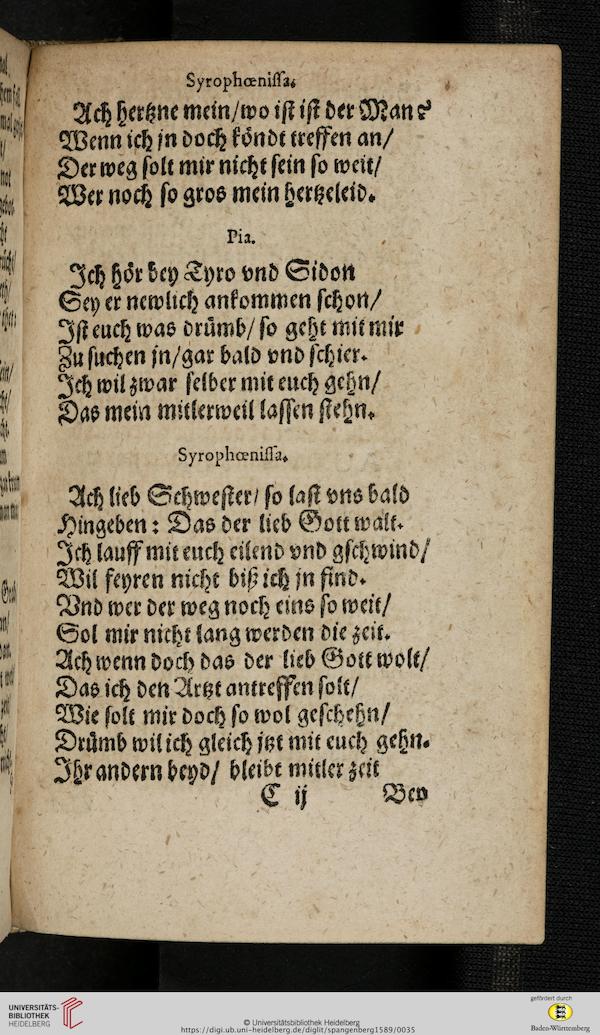 Syrophœniſſa.
Ach hertzne mein/wo iſt iſt der Man?
Wenn ich jn doch köndt treffen an/
Der weg ſolt mir nicht ſein ſo weit/
Wer noch ſo gros mein hertzeleid.
Pia.
Ich hör bey Tyro vnd Sidon
Sey er newlich ankommen ſchon/
Iſt euch was drümb/ ſo geht mit mir
Zu ſuchen jn/gar bald vnd ſchier.
Ich wil zwar ſelber mit euch gehn/
Das mein mitlerweil laſſen ſtehn.
Syrophœniſſa.
Ach lieb Schweſter/ ſo laſt vns bald
Hingeben: Das der lieb Gott walt.
Ich lauff mit euch eilend vnd gſchwind/
Wil feyren nicht biß ich jn find.
Vnd wer der weg noch eins ſo weit/
Sol mir nicht lang werden die zeit.
Ach wenn doch das der lieb Gott wolt/
Das ich den Artzt antreffen ſolt/
Wie ſolt mir doch ſo wol geſchehn/
Drümb wil ich gleich jtzt mit euch gehn.
Ihr andern beyd/ bleibt mitler zeit
C ij Bey
UNIVERSITÄTS-
BIBLIOTHEK
HEIDELBERG
© Universitätsbibliothek Heidelberg
https://digi.ub.uni-heidelberg.de/diglit/spangenberg1589/0035
gefördert durch
Baden-Württemberg